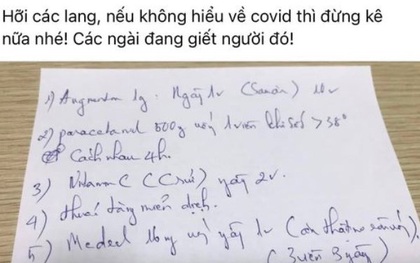 Hỡi các lang, nếu không hiểu về covid thì đừng kê
nữa nhé! Các ngài đang giết người đó!
1) Augmentin 1g. Ngày 1v
2) paracetamol 500g uống 1 viên khi sốt > 38°
Cách nhau 4h.
3) Vitamin C (C sủi) ngày 2v.
4) thuốc tăng miễn dịch.
5) Medrol 16mg uống ngày 1v
(3 viên 3 ngày)